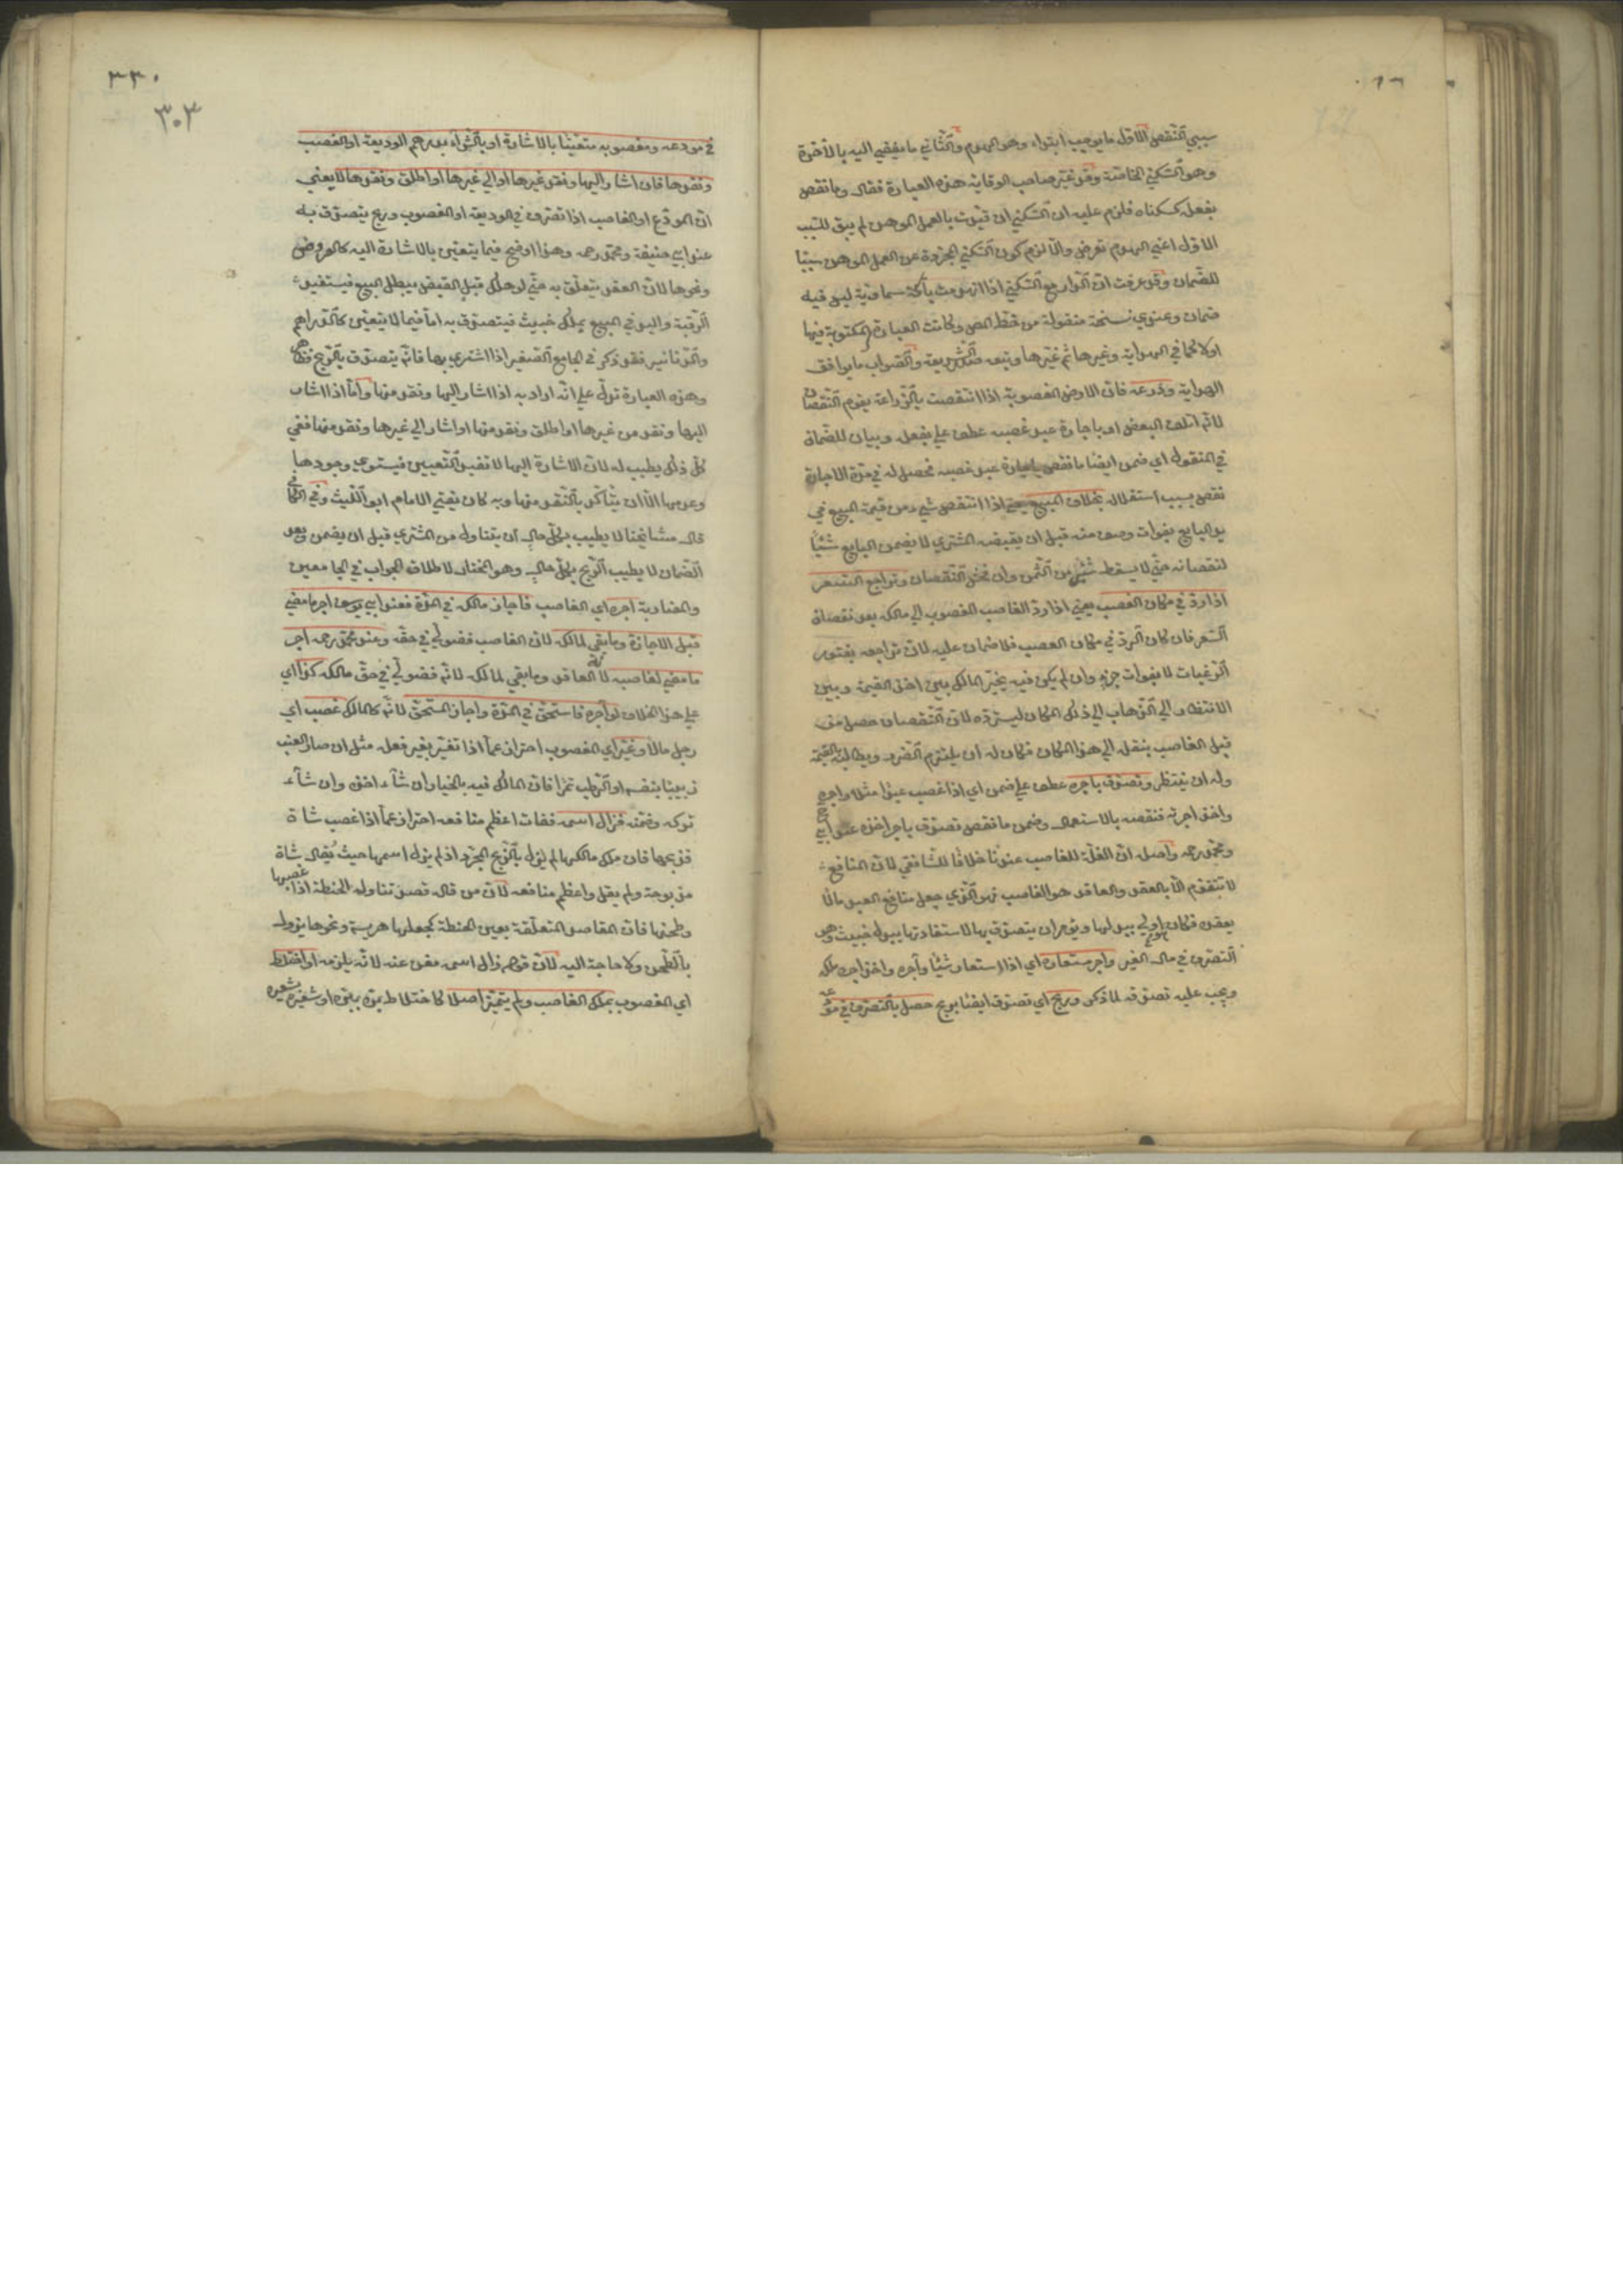 سببي النقص الاول ما يوجب ابتداء وهو الهدم والثاني ما يفضي اليه بالاخرة
وهو السكني الخاصة وقد غير صاحب الوقاية هذه العبارة فقال وما نقص
بفعله كسكناه فلزم عليه ان السكني ان قيدت بالعمل الموهن لم يبق للسبب
الاول اعني الهدم تعرض والا لزم كون السكني المجردة عن العمل الموهن سببا
للضمان وقد عرفت ان الدار مع السكني اذا انهدمت بآفة سماوية ليس فيه
ضمان وعندي نسخة منقولة من خط المص وكانت العبارة المكتوبة فيها
اولا كما في الهداية وغيرها ثم غيرها وتبعه صدر الشريعة والصواب ما يوافق
الهداية وزرعه فان الارض المغصوبة اذا انتقصت بالزراعة يغرم النقصان
لانه اتلف البعض او باجارة عبد غصبه عطف علي بفعله وبيان للضمان
في المنقول اي ضمن ايضا ما نقص باجارة عبد غصبه فحصل له في مدة الاجارة
نقص بسبب استغلاله بخلاف المبيع يعني اذا انتقص شيء من قيمة المبيع في
يد البايع بفوات وصف منه قبل ان يقبضه المشتري لا يضمن البايع شيئا
لنقصانه حتي لا يسقط شيء من الثمن وان فحش النقصان وتراجع السعر
اذا رد في مكان الغصب يعني اذا رد الغاصب المغصوب الي مالكه بعد نقصان
السعر فان كان الرد في مكان الغصب فلا ضمان عليه لان تراجعه بفتور
الرغبات لا بفوات جزء وان لم يكن فيه يخير المالك بين اخذ القيمة وبين
الانتظار الي الذهاب الي ذلك المكان ليسترده لان النقصان حصل من
قبل الغاصب بنقله الي هذا المكان فكان له ان يلتزم الضرر ويطالبه بالقيمة
وله ان ينتظر وتصدق باجره عطف علي ضمن اي اذا غصب عبدا مثلا واجره
واخذ اجرته فنقصه بالاستعمال وضمن ما نقص تصدق باجر اخذه عند ابي ح
ومحمد رحمه واصله ان الغلة للغاصب عندنا خلافا للشافعي لان المنافع
لا تتقوم الا بالعقد والعاقد هو الغاصب فهو الذي جعل منافع العبد مالا
بعقده فكان هو اولي ببدلها ويؤمر ان يتصدق بها لاستفادتها ببدل خبيث وهو
التصرف في مال الغير واجر مستعاره اي اذا استعار شيئا وآجره واخذ اجره ملكه
ويجب عليه تصدقه لما ذكر وربح اي تصدق ايضا بربح حصل بالتصرف في مودعه
في مودعه ومغصوبه متعينا بالاشارة او بالشراء بدرهم الوديعة او الغصب
ونقدها فان اشار اليها ونقد غيرها او الي غيرها او اطلق ونقدها لا يعني
ان المودع او الغاصب اذا تصرف في الوديعة او المغصوب وربح يتصدق به
عند ابي حنيفة ومحمد رحمه وهذا اوضح فيما يتعين بالاشارة اليه كالعروض
ونحوها لان العقد يتعلق به حتي لو هلك قبل القبض يبطل البيع فيستفيد
الرقبة واليد في المبيع بملك خبيث فيتصدق به اما فيما لا يتعين كالدراهم
والدنانير فقد ذكر في الجامع الصغير اذا اشتري بها فانه يتصدق بالربح
وهذه العبارة تدل علي انه اراد به اذا اشار اليها ونقد منها واما اذا اشار
اليها ونقد من غيرها او اطلق ونقد منها او اشار الي غيرها ونقد منها ففي
كل ذلك يطيب له لان الاشارة اليها لا تفيد التعيين فيستوي وجودها
وعدمها الا ان يتأكد بالنقد منها وبه كان يفتي الامام ابو الليث وفي الكافي
قال مشايخنا لا يطيب بكل حال ان يتناول من المشتري قبل ان يضمن وبعد
الضمان لا يطيب الربح بكل حال وهو المختار لاطلاق الجواب في الجامعين
والمضاربة اجره اي الغاصب فاجاز مالكه في المدة فعند ابي يوسف اجر ما مضي
قبل الاجازة وما بقي لمالكه لان الغاصب فضولي في حقه وعند محمد رحمه اجر
ما مضي لغاصبه لانه العاقد وما بقي لمالكه لانه فضولي في حق مالكه كذا اي
علي هذا الخلاف لو آجره فاستحق في المدة واجاز المستحق لانه كالمالك غصب اي
رجل مالا وغير اي المغصوب احترازعما اذا تغير بغير فعله مثل ان صار العنب
زبيبا بنفسه او الرطب تمرا فان المالك فيه بالخيار ان شاء اخذه وان شاء
تركه وضمنه فزال اسمه ففات اعظم منافعه احتراز عما اذا غصب شاة
فذبحها فان ملك مالكها لم يزل بالذبح المجرد اذ لم يزل اسمها حيث يقال شاة
مذبوحة ولم يقل واعظم منافعه لان من قال قصد تناوله الحنطة اذا غصبها
وطحنها فان المقاصد المتعلقة بعين الحنطة كجعلها هريسة ونحوها يزول
بالطحن ولا حاجة اليه لان قوله زال اسمه مغن عنه لانه يلزمه او اختلط
اي المغصوب بملك الغاصب ولم يتميز اصلا كاختلاط بره ببره او شعيره بشعيره
٣٣٠
٣٠٣